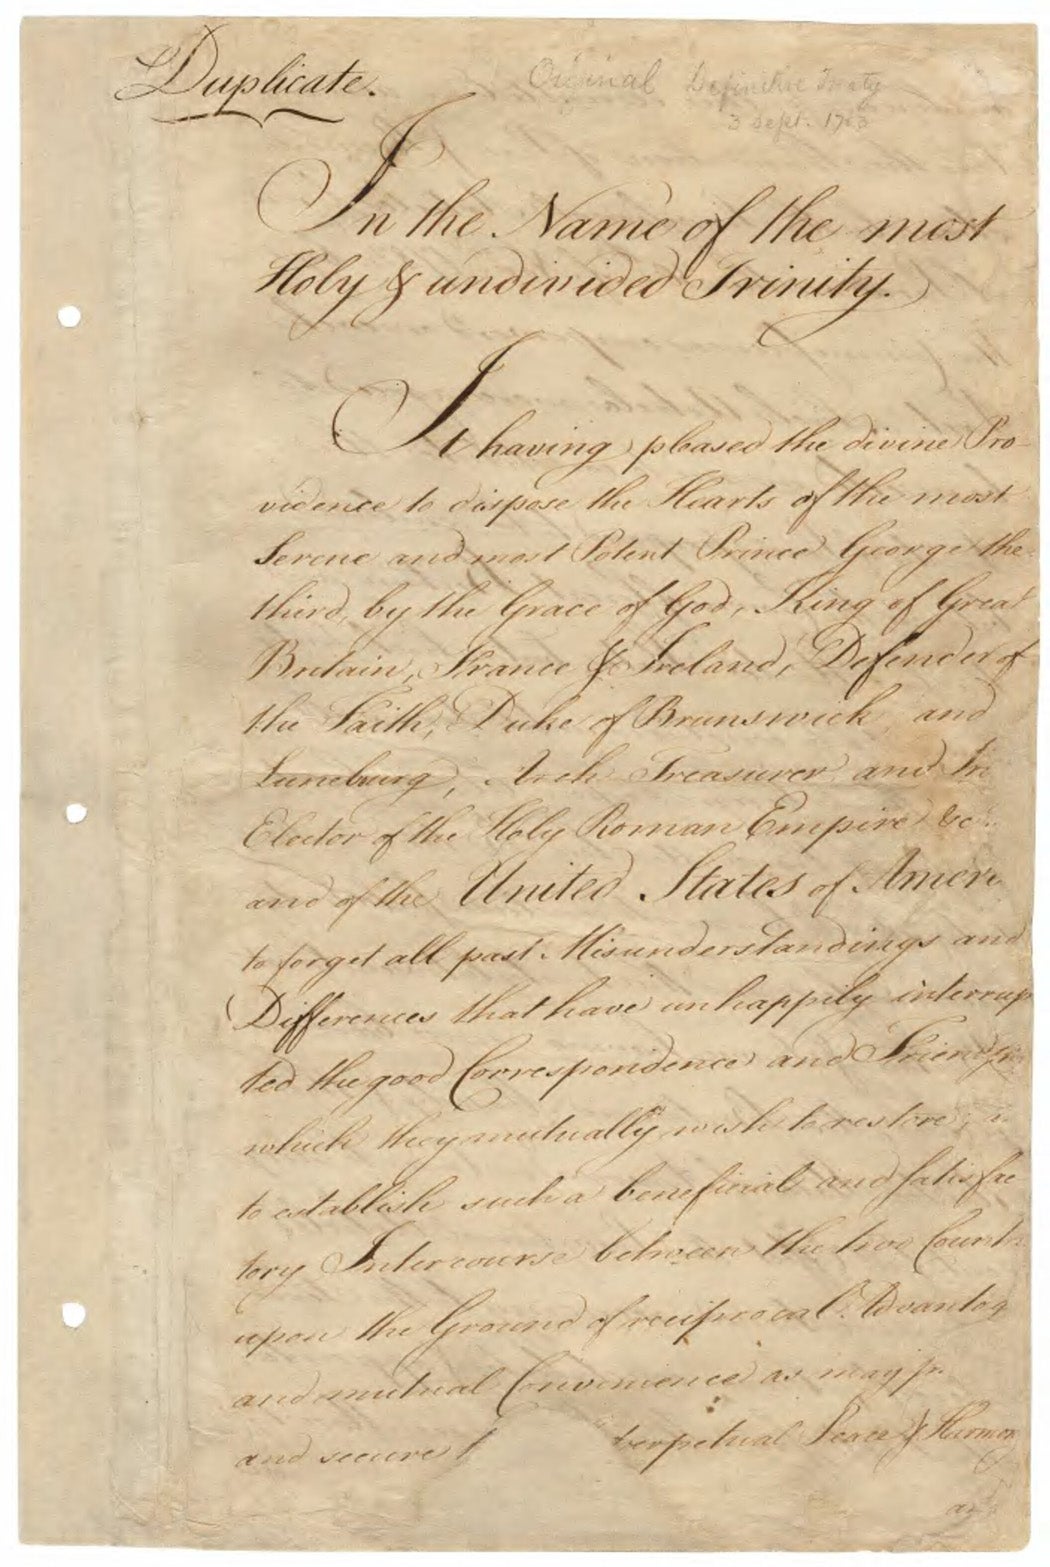 Duplicate.
Original Definitive Treaty
3 Sept. 1783
In the Name of the most
Holy & undivided Trinity.
It having pleased the divine Pro-
vidence to dispose the Hearts of the most
Serene and most Potent Prince George the
third, by the Grace of God, King of Great
Britain, France & Ireland, Defender of
the Faith, Duke of Brunswick and
Luneburg, Arch Treasurer, and Pri
Elector of the Holy Roman Empire &c.
and of the United States of Ameri
to forget all past Misunderstandings and
Differences that have unhappily interrup
ted the good Correspondence and Friendship
which they mutually wish to restore;
to establish such a beneficial and satisfac
tory Intercourse between the two Countr
upon the Ground of reciprocal Advantag
and mutual Convenience as may pr
and secure t perpetual Peace & Harmony
and